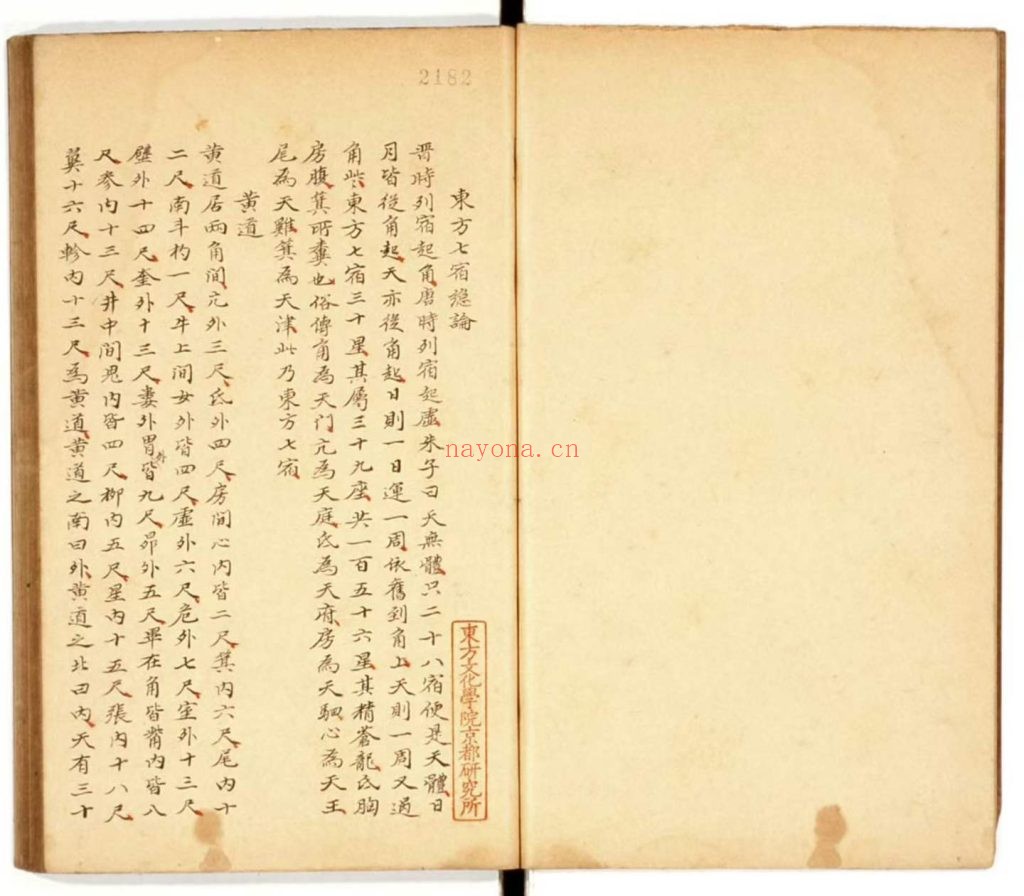 2182
東方七宿總論
晋時列宿起角唐時列宿起虛朱子曰天無體只二十八宿便是天體日
月皆從角起天亦從角起日則一日運一周依舊到角上天則一周又過
角些東方七宿三十星其屬三十九座共一百五十六星其精蒼龍氐胸
房腹箕所糞也俗傳角為天门亢為天庭氐為天府房為天駟心為天王
尾為天雞箕為天津此乃東方七宿
黄道
黄道居兩角間亢外三尺氐外四尺房間心內皆二尺箕內六尺尾內十
二尺南斗杓一尺牛上間女外皆四尺虛外六尺危外七尺室外十三尺
壁外十四尺奎外十三尺婁外胃外皆九尺昴外五尺畢在角皆觜內皆八
尺参內十三尺井中間鬼內皆四尺柳內五尺星內十五尺張內十八尺
翼十六尺軫內十三尺為黄道黄道之南曰外黄道之北曰內天有三十
東方文化學院京都研究所
nayona.cn